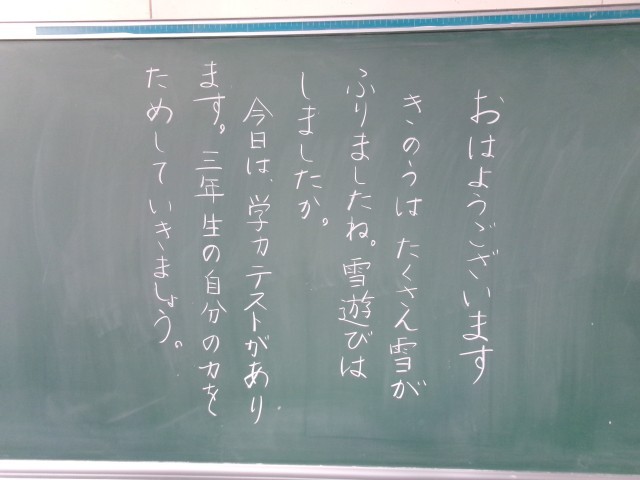 おはようございます
きのうは たくさん雪が
ふりましたね。雪遊びは
しましたか。
今日は、学力テストがあり
ます。三年生の自分の力を
ためしていきましょう。